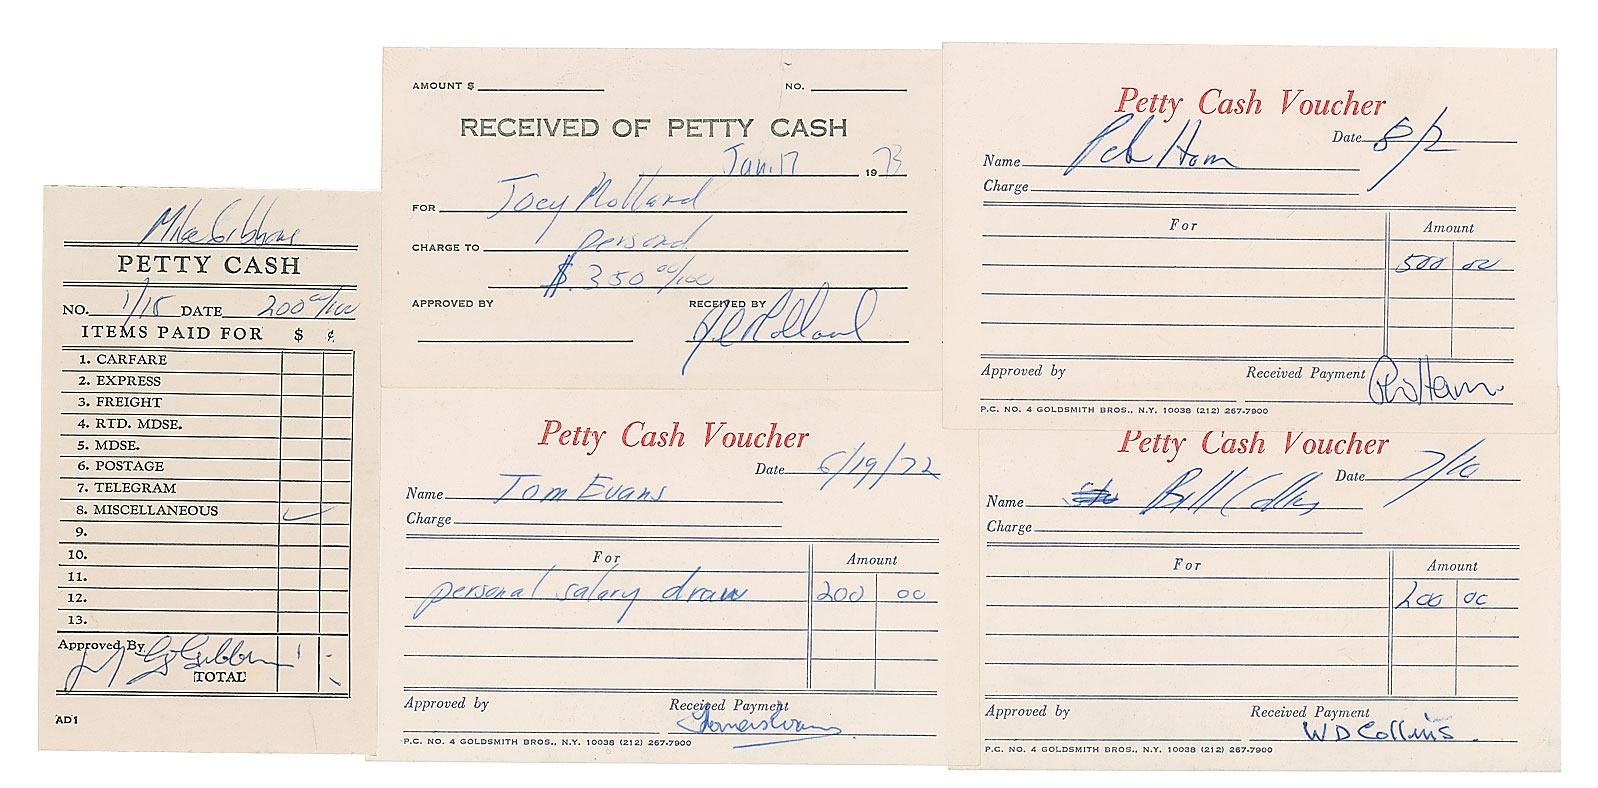 Mike Gibbons
PETTY CASH
NO. 1/18 DATE 200 00/100
ITEMS PAID FOR $ ¢
1. CARFARE
2. EXPRESS
3. FREIGHT
4. RTD. MDSE.
5. MDSE.
6. POSTAGE
7. TELEGRAM
8. MISCELLANEOUS ✓
9.
10.
11.
12.
13.
Approved By
TOTAL
AD1
AMOUNT $ NO.
RECEIVED OF PETTY CASH
Jan. 17 1973
FOR Joey Molland
CHARGE TO personal
$.350 00/100
APPROVED BY RECEIVED BY
Molland
Petty Cash Voucher
Date 6/19/72
Name Tom Evans
Charge
For Amount
personal salary draw 200 00
Approved by Received Payment
Thomas Evans
P.C. NO. 4 GOLDSMITH BROS., N.Y. 10038 (212) 267-7900
Petty Cash Voucher
Date 8/2
Name Pete Ham
Charge
For Amount
500 00
Approved by Received Payment Pete Ham
P.C. NO. 4 GOLDSMITH BROS., N.Y. 10038 (212) 267-7900
Petty Cash Voucher
Date 7/10
Name Bill Collins
Charge
For Amount
200 00
Approved by Received Payment
WD Collins
P.C. NO. 4 GOLDSMITH BROS., N.Y. 10038 (212) 267-7900